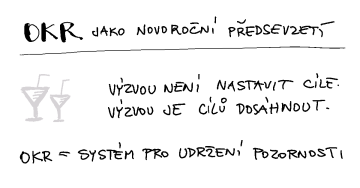 OKR JAKO NOVOROČNÍ PŘEDSEVZETÍ
VÝZVOU NENÍ NASTAVIT CÍLE.
VÝZVOU JE CÍLŮ DOSÁHNOUT.
OKR = SYSTÉM PRO UDRŽENÍ POZORNOSTI